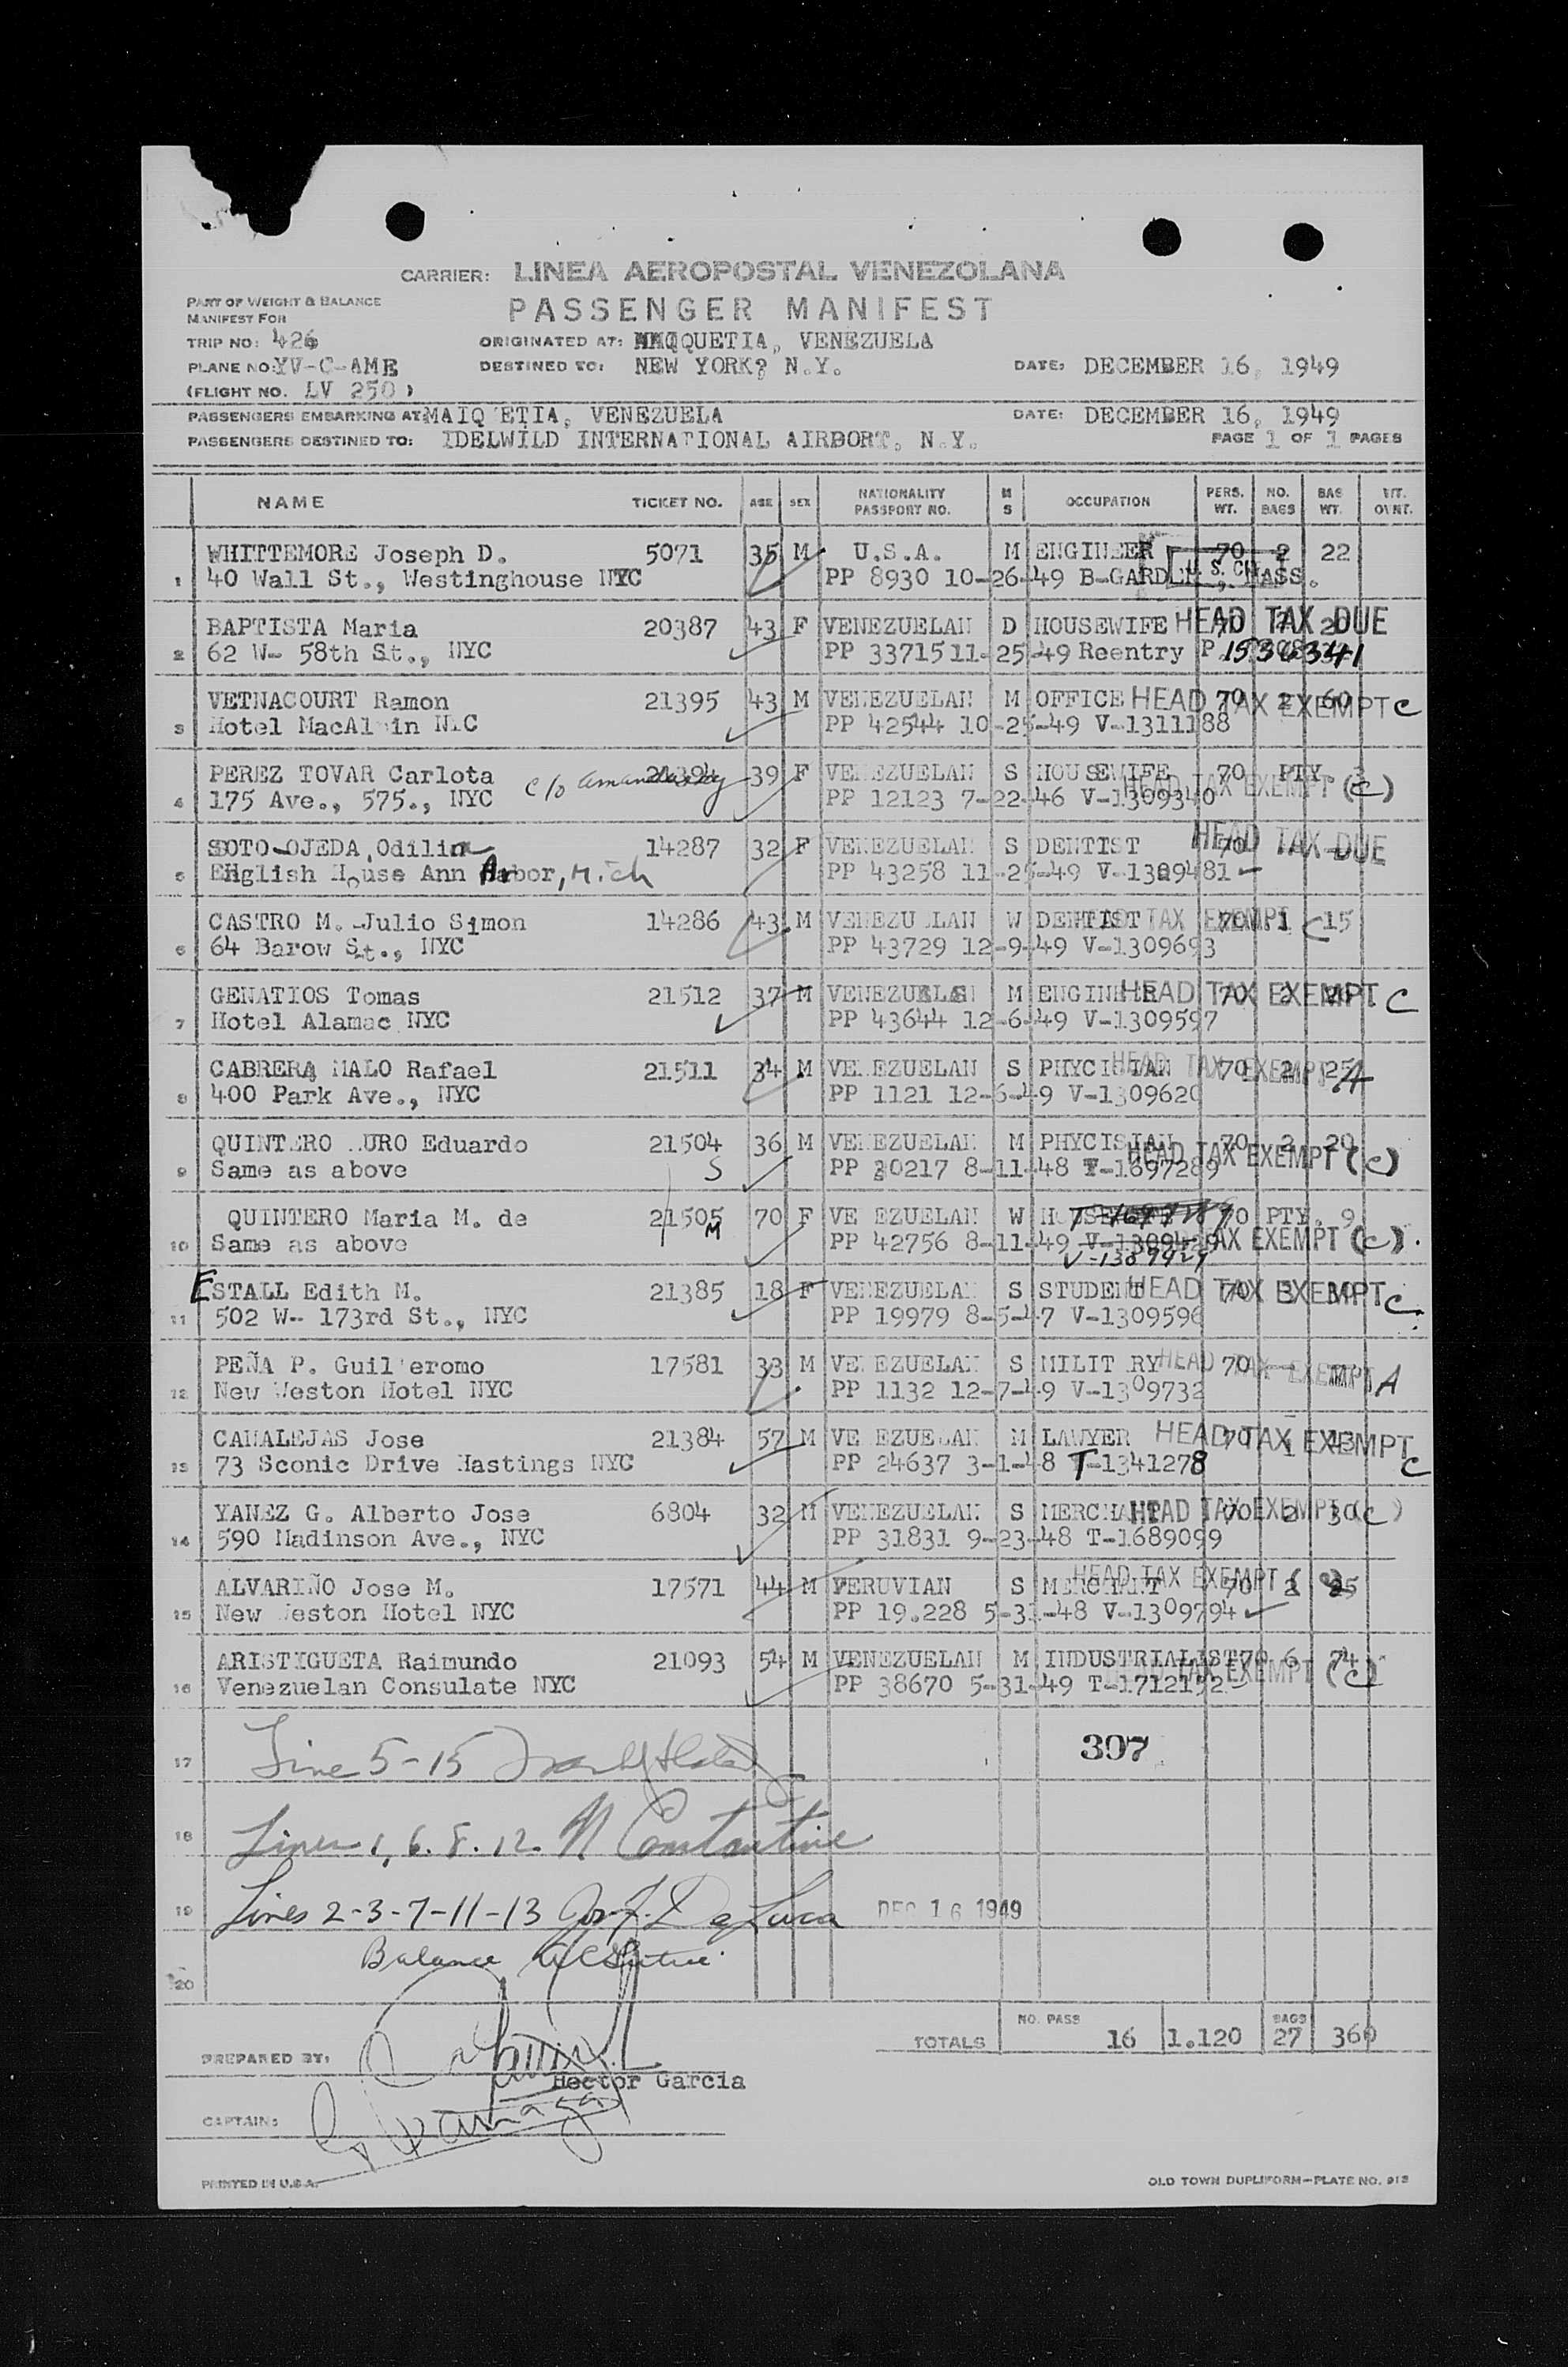 CARRIER: LINEA AEROPOSTAL VENEZOLANA
PART OF WEIGHT & BALANCE
MANIFEST FOR
PASSENGER MANIFEST
TRIP NO: 426 ORIGINATED AT: MAIQUETIA, VENEZUELA
PLANE NO: YV-C-AME DESTINED TO: NEW YORK? N.Y. DATE: DECEMBER 16, 1949
(FLIGHT NO. LV 250)
PASSENGERS EMBARKING AT: MAIQ ETIA, VENEZUELA DATE: DECEMBER 16, 1949
PASSENGERS DESTINED TO: IDELWILD INTERNATIONAL AIRBORT, N.Y. PAGE 1 OF 1 PAGES
NAME TICKET NO. AGE SEX NATIONALITY PASSPORT NO. M S OCCUPATION PERS. WT. NO. BAGS BAG WT.
WHITTEMORE Joseph D. 5071 35 M U.S.A. M ENGINEER 70 2 22
1 40 Wall St., Westinghouse NYC PP 8930 10-26-49 B-GARDEN, MASS. U. S. CIT
BAPTISTA Maria 20387 43 F VENEZUELAN D HOUSEWIFE HEAD TAX DUE 70 2
2 62 W- 58th St., NYC PP 33715 11-25-49 Reentry P. 1536341
VETNACOURT Ramon 21395 43 M VENEZUELAN M OFFICE HEAD TAX EXEMPT C 70 2 60
3 Hotel MacAl in NYC PP 42544 10-25-49 V-1311188
PEREZ TOVAR Carlota c/o 20394 39 F VENEZUELAN S HOUSEWIFE 70 PTY. 3
4 175 Ave., 575., NYC PP 12123 7-22-46 V-1309340 HEAD TAX EXEMPT (C)
SOTO-OJEDA, Odilia 14287 32 F VENEZUELAN S DENTIST 70 HEAD TAX DUE
5 ENglish House Ann Arbor, Mich PP 43258 11-25-49 V-1309481
CASTRO M. -Julio Simon 14286 43 M VENEZU LAN W DENTIST HEAD TAX EXEMPT C 70 1 15
6 64 Barow St., NYC PP 43729 12-9-49 V-1309693
GENATIOS Tomas 21512 37 M VENEZUELAN M ENGINEER HEAD TAX EXEMPT C 70 2
7 Hotel Alamac NYC PP 43644 12-6-49 V-1309597
CABRERA MALO Rafael 21511 34 M VENEZUELAN S PHYCISIAN HEAD TAX EXEMPT A 70 2 25
8 400 Park Ave., NYC PP 1121 12-6-49 V-1309620
QUINTERO MURO Eduardo 21504 36 M VENEZUELAN M PHYCISIAN 70 2 20
9 Same as above S PP 20217 8-11-48 T-1697289 HEAD TAX EXEMPT (C)
QUINTERO Maria M. de 21505 70 F VE EZUELAN W HOUSEWIFE T-1697289 70 PTY. 9
10 Same as above M PP 42756 8-11-49 V-1309429 TAX EXEMPT (C)
V-1309929
ESTALL Edith M. 21385 18 F VENEZUELAN S STUDENT HEAD TAX EXEMPT C 70 3
11 502 W- 173rd St., NYC PP 19979 8-5-47 V-1309596
PEÑA P. Guil eromo 17581 33 M VENEZUELAN S MILIT RY HEAD TAX EXEMPT A 70
12 New Weston Hotel NYC PP 1132 12-7-49 V-1309732
CANALEJAS Jose 21384 57 M VE EZUELAN M LAWYER HEAD TAX EXEMPT C 70 1
13 73 Sconic Drive Hastings NYC PP 24637 3-1-48 T-1341278
YANEZ G. Alberto Jose 6804 32 M VENEZUELAN S MERCHANT HEAD TAX EXEMPT (C) 70 2 30
14 590 Madinson Ave., NYC PP 31831 9-23-48 T-1689099
ALVARIÑO Jose M. 17571 44 M PERUVIAN S MERCHANT HEAD TAX EXEMPT 70 2 25
15 New Weston Hotel NYC PP 19.228 5-31-48 V-1309794
ARISTIGUETA Raimundo 21093 54 M VENEZUELAN M INDUSTRIALIST 70 6 74
16 Venezuelan Consulate NYC PP 38670 5-31-49 T-1712152 TAX EXEMPT (C)
17 Line 5-15 307
18 Lines 1, 6. 8. 12. N Constantine
19 Lines 2-3-7-11-13 Jos. F. DeLuca DEC 16 1949
Balance
20
TOTALS NO. PASS 16 1.120 BAGS 27 360
PREPARED BY:
Hector Garcia
CAPTAIN:
PRINTED IN U.S.A. OLD TOWN DUPLIFORM-PLATE NO. 913